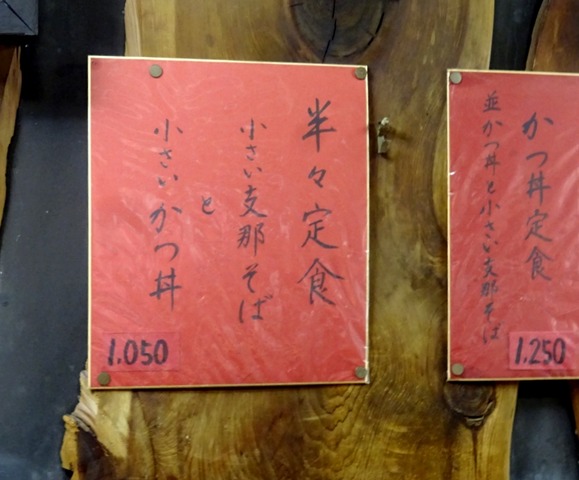 半々定食
小さい支那そば
と
小さいかつ丼
1.050
かつ丼定食
並かつ丼と小さい支那そば
1.250